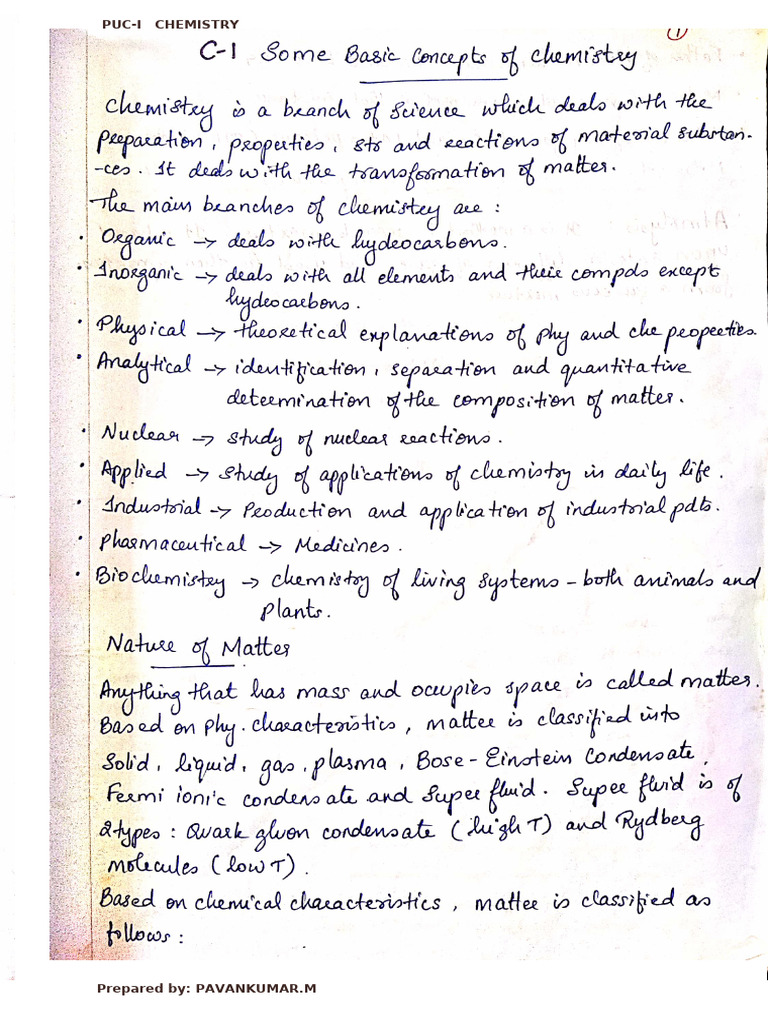 PUC-I CHEMISTRY
1
C-1 Some Basic Concepts of Chemistry
Chemistry is a branch of science which deals with the
preparation, properties, str and reactions of material substan-
-ces. It deals with the transformation of matter.
The main branches of chemistry are :
• Organic → deals with hydrocarbons.
• Inorganic → deals with all elements and their compds except
hydrocarbons.
• Physical → theoretical explanations of phy and che properties.
• Analytical → identification, separation and quantitative
determination of the composition of matter.
• Nuclear → study of nuclear reactions.
• Applied → study of applications of chemistry in daily life.
• Industrial → Production and application of industrial pdts.
• Pharmaceutical → Medicines.
• Biochemistry → chemistry of living systems - both animals and
plants.
Nature of Matter
Anything that has mass and occupies space is called matter.
Based on phy. characteristics, matter is classified into
Solid, liquid, gas, plasma, Bose-Einstein condensate,
Fermi ionic condensate and Super fluid. Super fluid is of
2types : Quark gluon condensate (high T) and Rydberg
molecules (low T).
Based on chemical characteristics, matter is classified as
follows :
Prepared by: PAVANKUMAR.M